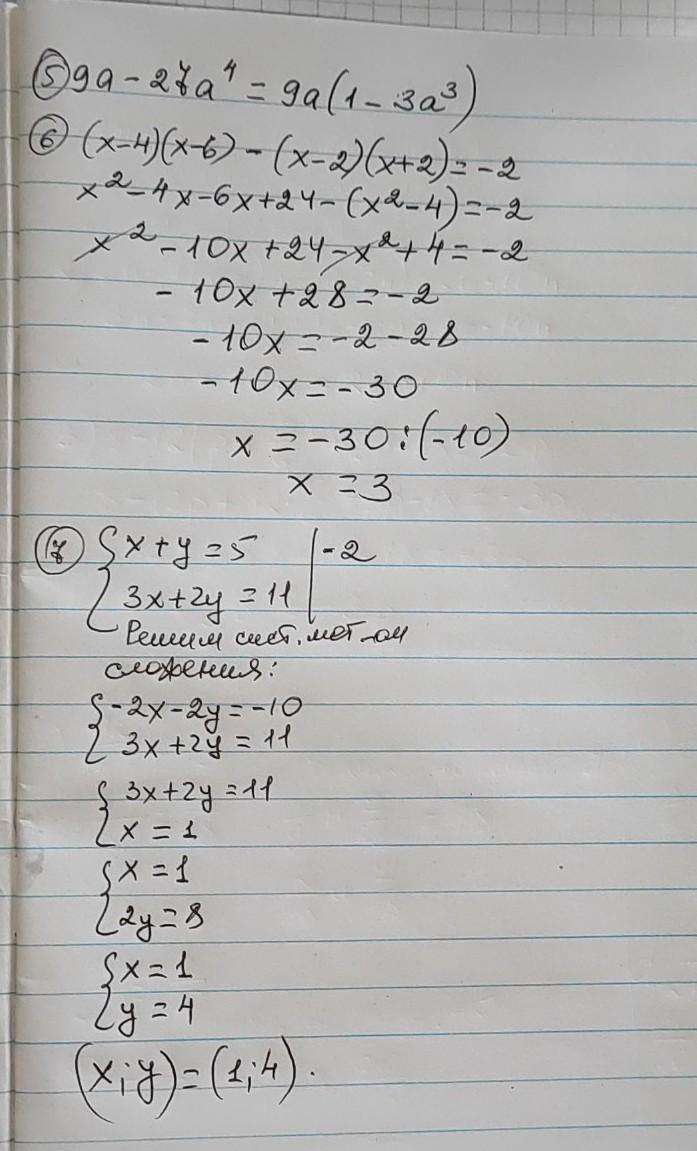 ⑤ 9a - 27a⁴ = 9a(1 - 3a³)
⑥ (x-4)(x-6) - (x-2)(x+2) = -2
x² - 4x - 6x + 24 - (x² - 4) = -2
x² - 10x + 24 - x² + 4 = -2
- 10x + 28 = -2
- 10x = -2 - 28
- 10x = -30
x = -30 : (-10)
x = 3
⑦ { x + y = 5 | -2
3x + 2y = 11
Решим сист. мет-ом
сложения:
{ -2x - 2y = -10
3x + 2y = 11
{ 3x + 2y = 11
x = 1
{ x = 1
2y = 8
{ x = 1
y = 4
(x; y) = (1; 4).